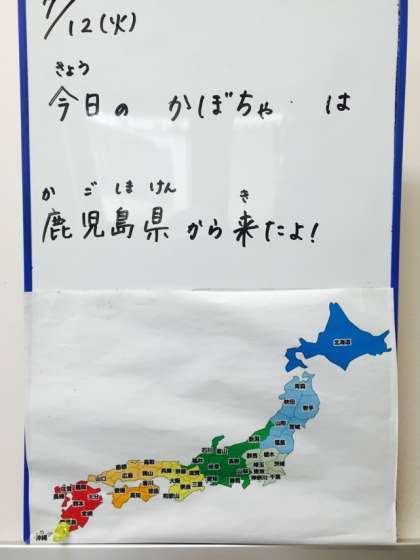 7/12(火)
きょう
今日の かぼちゃ は
かごしまけん き
鹿児島県から来たよ!
北海道
青森
秋田
岩手
山形
宮城
福島
新潟
石川 富山
群馬 栃木
茨城
埼玉
長野
岐阜
山梨 東京
神奈川 千葉
愛知 静岡
福井
鳥取
島根
岡山
広島
山口
兵庫
京都
滋賀
大阪
奈良
三重
和歌山
香川
徳島
愛媛
高知
福岡
佐賀
長崎
大分
熊本
宮崎
沖縄